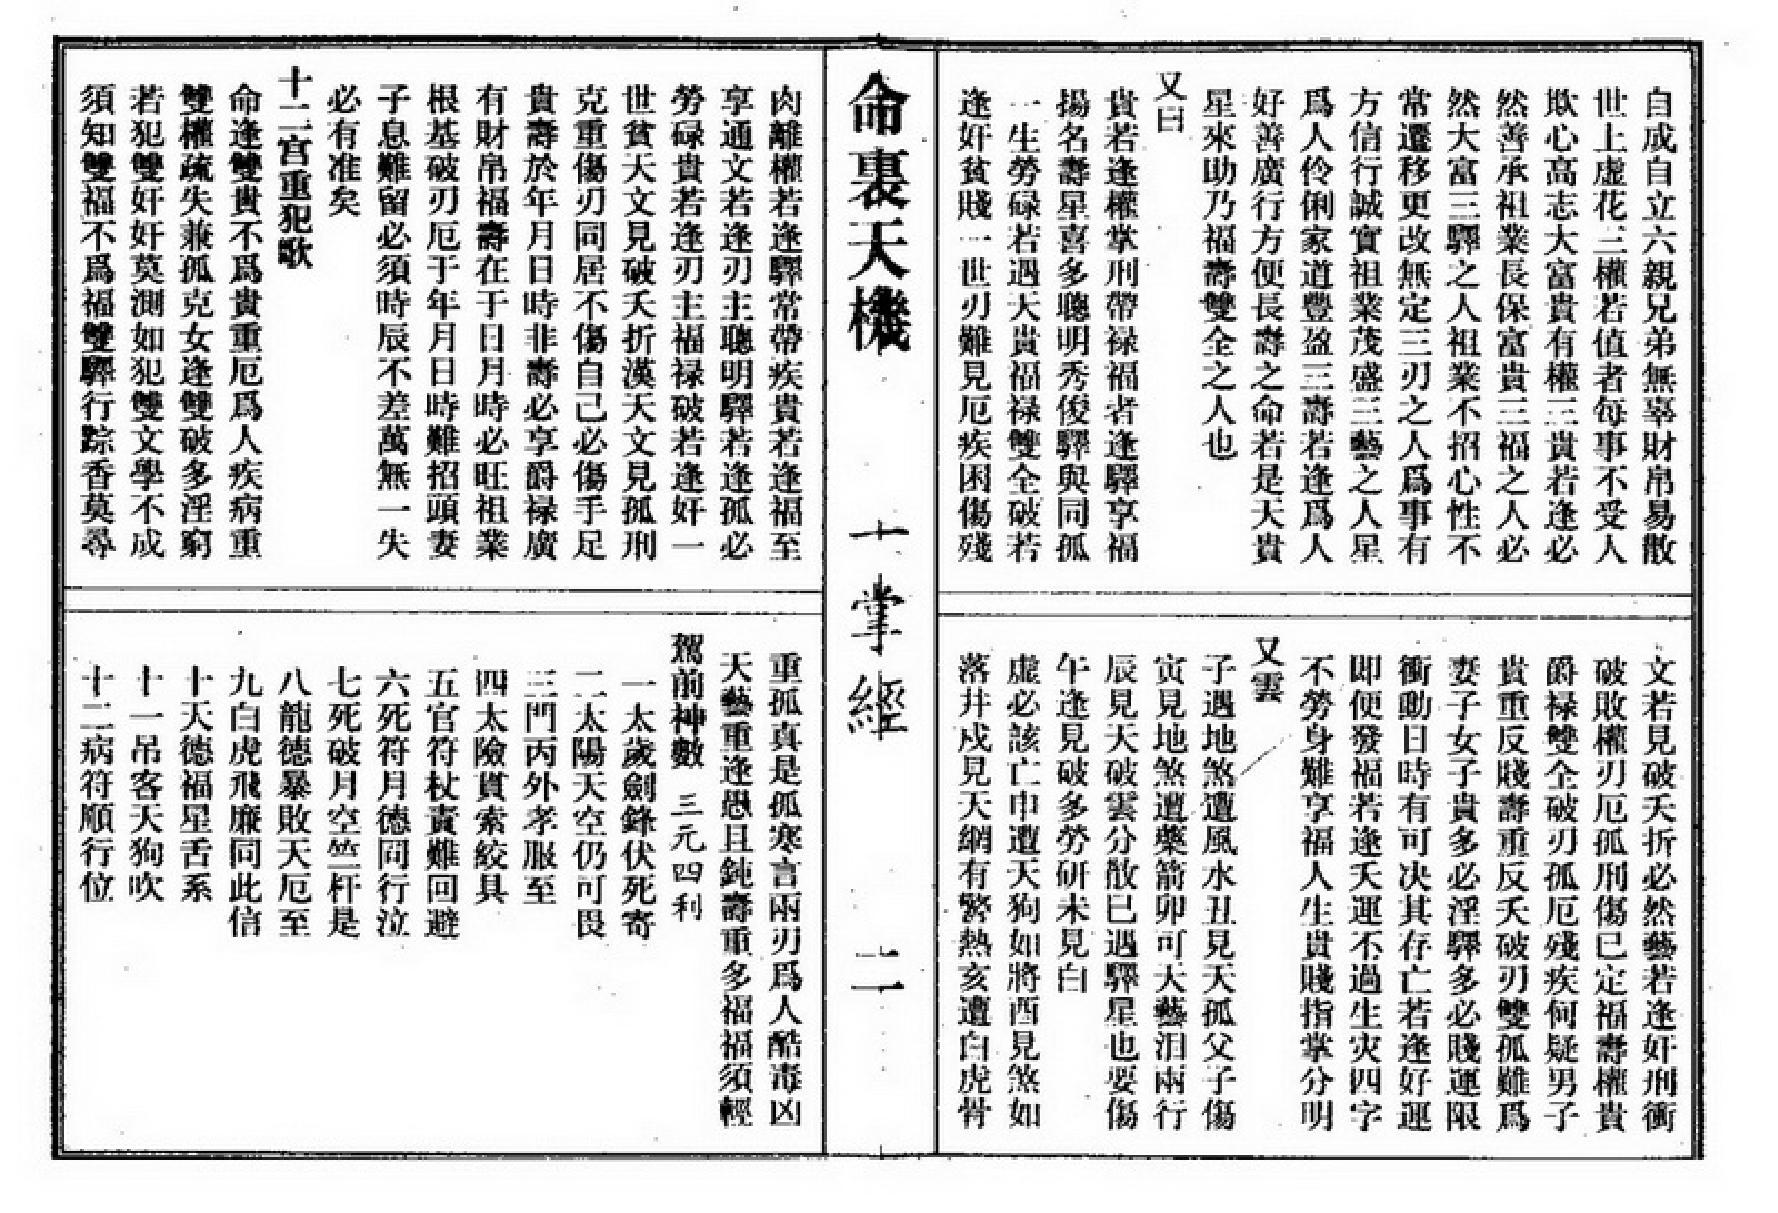 自成自立六親兄弟無辜財帛易散
世上虛花三權若值者每事不受人
欺心高志大富貴有權三貴若逢必
然善承祖業長保富貴三福之人必
然大富三驛之人祖業不招心性不
常遷移更改無定三刃之人爲事有
方信行誠實祖業茂盛三藝之人星
爲人伶俐家道豐盈三壽若逢爲人
好善廣行方便長壽之命若是天貴
星來助乃福壽雙全之人也
又曰
貴若逢權掌刑帶禄福者逢驛享福
揚名壽星喜多聰明秀俊驛與同孤
一生勞碌若遇天貴福禄雙全破若
逢奸貧賤一世刃難見厄疾困傷殘
文若見破夭折必然藝若逢奸刑衝
破敗權刃厄孤刑傷已定福壽權貴
爵禄雙全破刃孤厄殘疾何疑男子
貴重反賤壽重反夭破刃雙孤難爲
妻子女子貴多必淫驛多必賤運限
衝動日時有可决其存亡若逢好運
即便發福若逢夭運不過生灾四字
不勞身難享福人生貴賤指掌分明
又雲
子遇地煞遭風水丑見天孤父子傷
寅見地煞遭藥箭卯可天藝泪兩行
辰見天破雲分散巳遇驛星也要傷
午逢見破多勞研未見白
虛必該亡申遭天狗如將酉見煞如
落井戍見天網有驚熱亥遭白虎骨
命裏天機
一掌經
二
肉離權若逢驛常帶疾貴若逢福至
享通文若逢刃主聰明驛若逢孤必
勞碌貴若逢刃主福禄破若逢奸一
世貧天文見破夭折漢天文見孤刑
克重傷刃同居不傷自己必傷手足
貴壽於年月日時非壽必享爵禄廣
有財帛福壽在于日月時必旺祖業
根基破刃厄于年月日時難招頭妻
子息難留必須時辰不差萬無一失
必有准矣
十二宮重犯歌
命逢雙貴不爲貴重厄爲人疾病重
雙權疏失兼孤克女逢雙破多淫窮
若犯雙奸奸莫測如犯雙文學不成
須知雙福不爲福雙驛行踪香莫尋
重孤真是孤寒言兩刃爲人酷毒凶
天藝重逢愚且鈍壽重多福福須輕
駕前神數 三元四利
一太歲劍鋒伏死寄
二太陽天空仍可畏
三門丙外孝服至
四太險貫索絞具
五官符杖責難回避
六死符月德同行泣
七死破月空竺杆是
八龍德暴敗天厄至
九白虎飛廉同此信
十天德福星舌系
十一吊客天狗吹
十二病符順行位